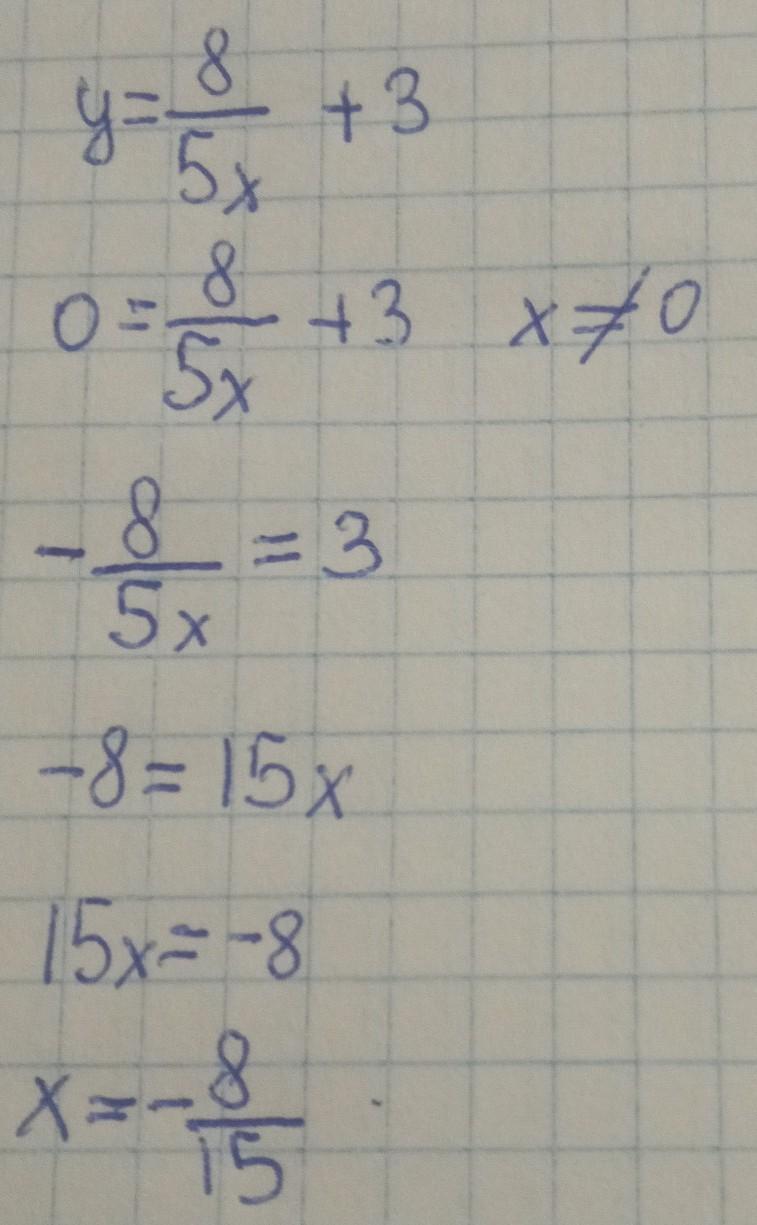 y = 8/5x + 3
0 = 8/5x + 3 x ≠ 0
- 8/5x = 3
-8 = 15x
15x = -8
x = - 8/15